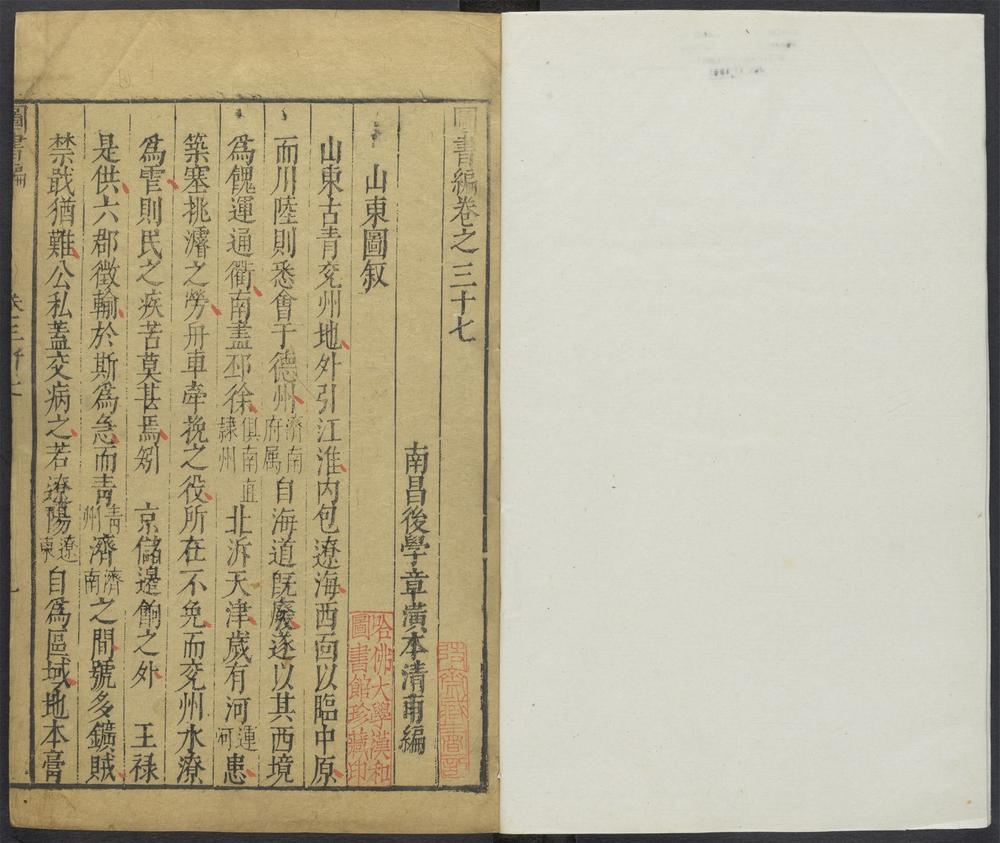 圖書編卷之三十七
南昌後學章潢本清甫編
山東圖叙
山東古青兖州地外引江淮内包遼海西面以臨中原
而川陸則悉會于德州濟南府属自海道既廢遂以其西境
為餽運通衢南盡邳徐俱南直隸州北泝天津歲有河運河患
築塞挑濬之勞舟車牽挽之役所在不免而兖州水潦
為霅則民之疾苦莫甚焉矧 京儲邊餉之外 王禄
是供六郡徵輸於斯為急而青青州濟濟南之間號多鑛賊
禁戢猶難公私蓋交病之若遼陽遼東自為區域地本膏
圖書編
哈佛大學漢和
圖書館珍藏印